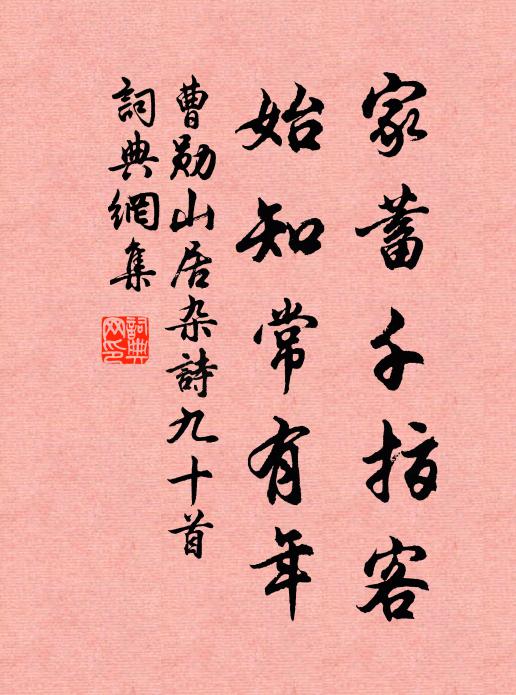 家蓄千指客
始知常有年
曹勋山居杂詩九十首
詞典網集
詞典網印